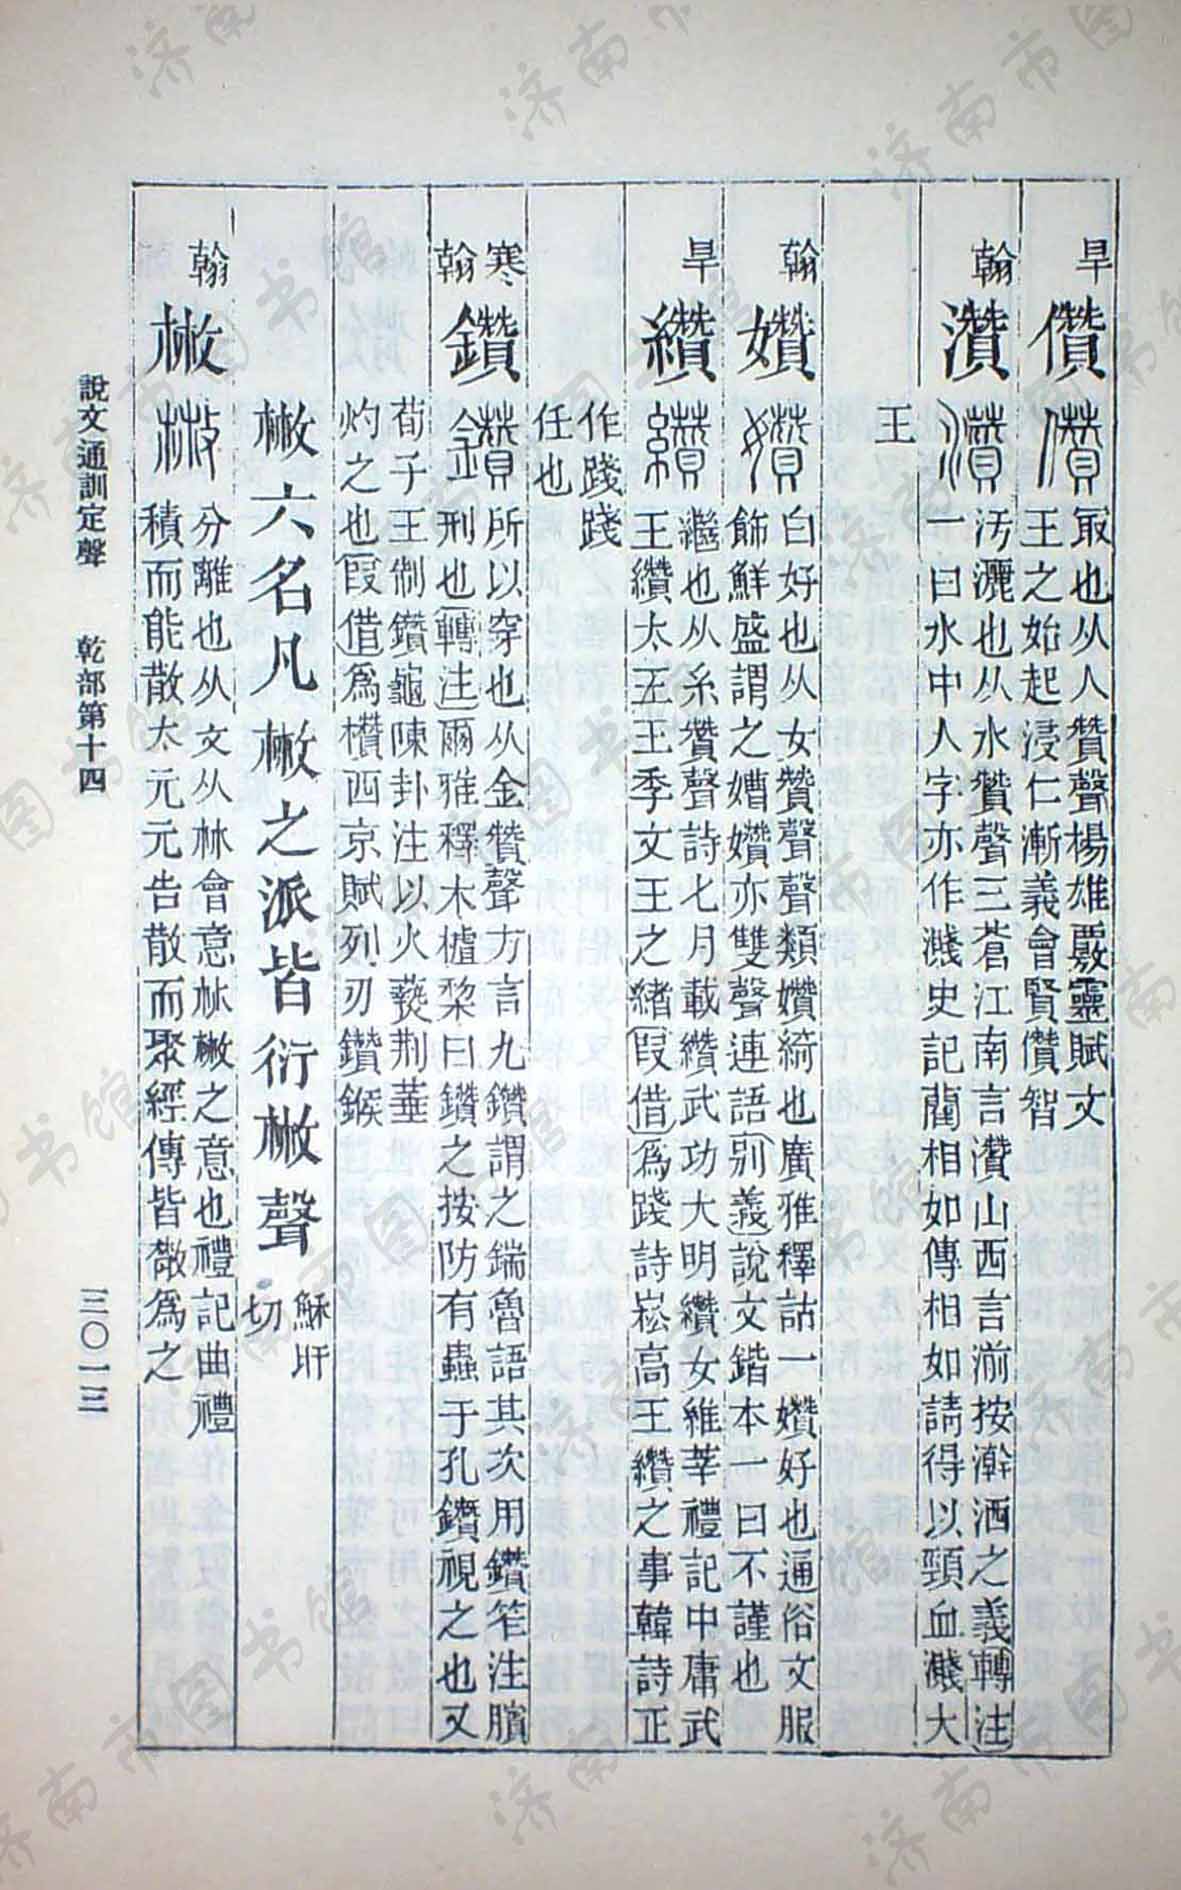 旱
儹 儹 冣也从人贊聲楊雄覈靈賦文
王之始起浸仁漸義會賢儹智
翰
灒 灒 汚灑也从水贊聲三蒼江南言灒山西言湔按澣洒之義轉注
一曰水中人字亦作濺史記藺相如傳相如請得以頸血濺大
王
翰
㜺 㜺 白好也从女贊聲聲類㜺綺也廣雅釋詁一㜺好也通俗文服
飾鮮盛謂之㜖㜺亦雙聲連語別義說文鍇本一曰不謹也
旱
纘 纘 繼也从糸贊聲詩七月載纘武功大明纘女維莘禮記中庸武
王纘太王王季文王之緒叚借爲踐詩崧高王纘之事韓詩正
作踐踐
任也
寒
翰
鑽 鑽 所以穿也从金贊聲方言九鑽謂之鍴魯語其次用鑽笮注臏
刑也轉注爾雅釋木樝棃曰鑽之按防有蟲于孔鑽視之也又
荀子王制鑽龜陳卦注以火爇荆菙
灼之也叚借爲欑西京賦列刃鑽鍭
㪔六名凡㪔之派皆衍㪔聲 穌旰
切
翰
㪔 㪔 分離也从攴从𣏟會意𣏟㪔之意也禮記曲禮
積而能散太元元告散而聚經傳皆㪚爲之
說文通訓定聲 乾部第十四 三〇一三
济南市图书馆